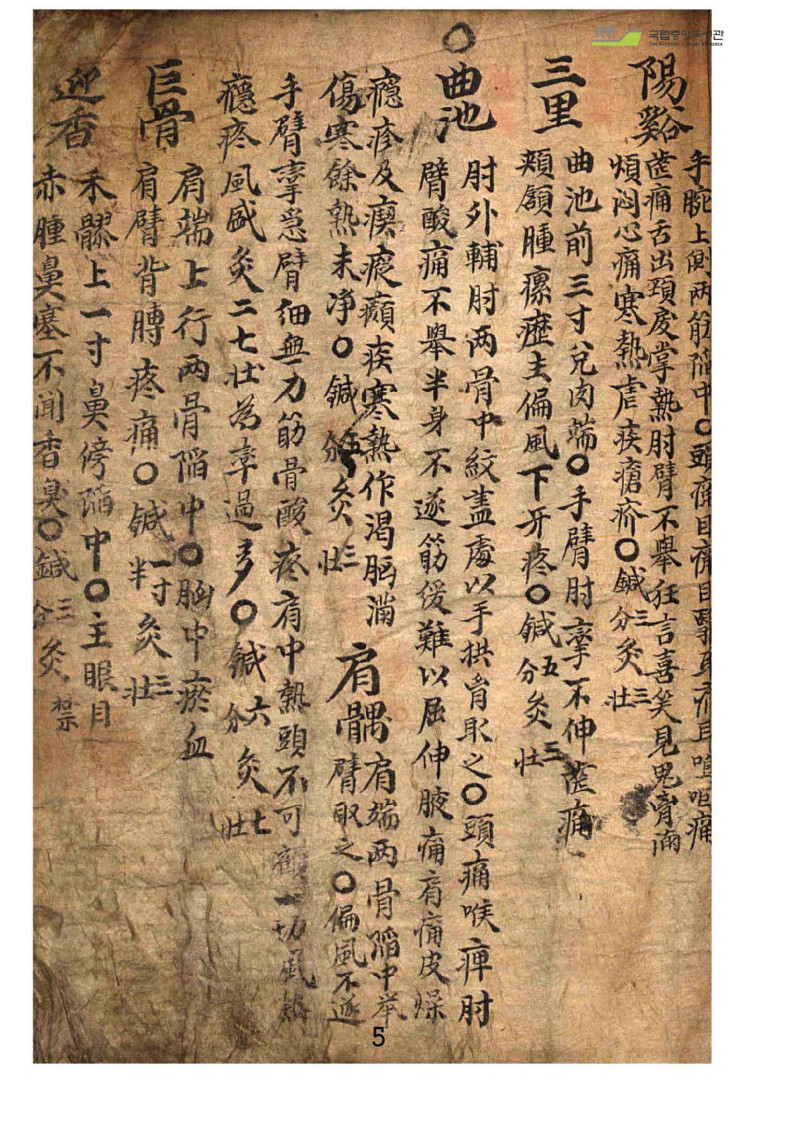 국립중앙도서관
THE NATIONAL LIBRARY OF KOREA
陽谿
手腕上側两筋陷中○頭痛目痛目翳耳痛耳 咽痛
齒痛舌出頸 掌熱肘臂不舉狂言喜笑見鬼胷滿
煩悶心痛寒熱虐疾瘡疥○鍼三分灸三壯
三里
曲池前三寸兌肉端○手臂肘攣不伸齒痛
頰頷腫瘰癧主偏風下牙疼○鍼五分灸三壯
○曲池
肘外輔肘两骨中紋盖處以手拱胷取之○頭痛喉痺肘
臂酸痛不舉半身不遂筋缓難以屈伸腋痛肩痛皮燥
癮疹及瘈瘲癲疾寒熱作渴胷滿
傷寒餘熱未净○鍼五分灸三壯
肩髃
肩端两骨陷中举
臂取之○偏風不遂
手臂攣急臂细無力筋骨酸疼肩中熱頭不可顧一切風熱
癮疼風盛灸二七壯為率過多○鍼六分灸七壯
巨骨
肩端上行两骨陷中○胸中瘀血
肩臂背膊疼痛○鍼一寸半灸三壯
迎香
禾髎上一寸鼻傍陷中○主眼目
赤腫鼻塞不聞香臭○鍼三分灸禁
5